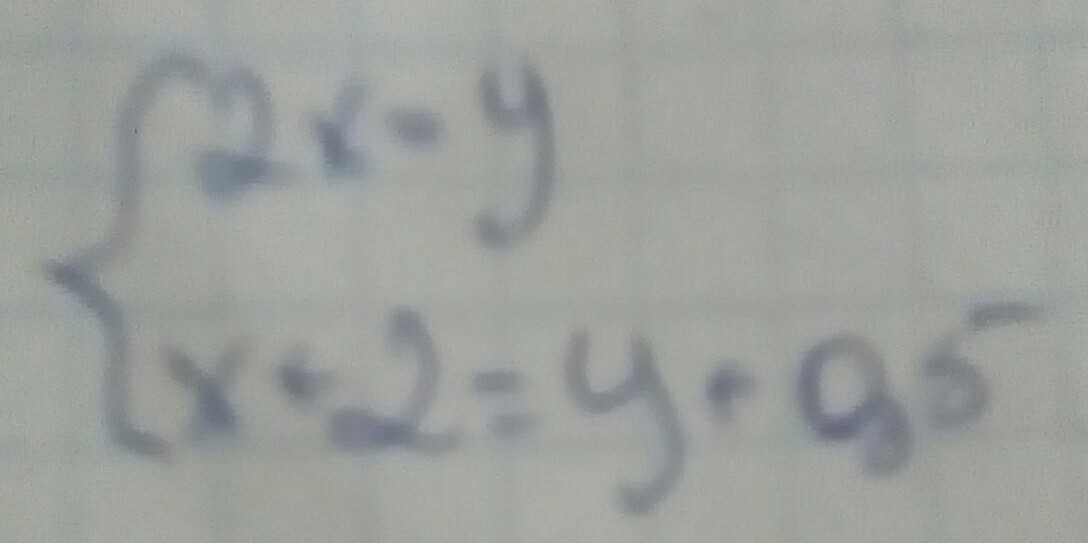 2x - y
x + 2 = y + 0,5